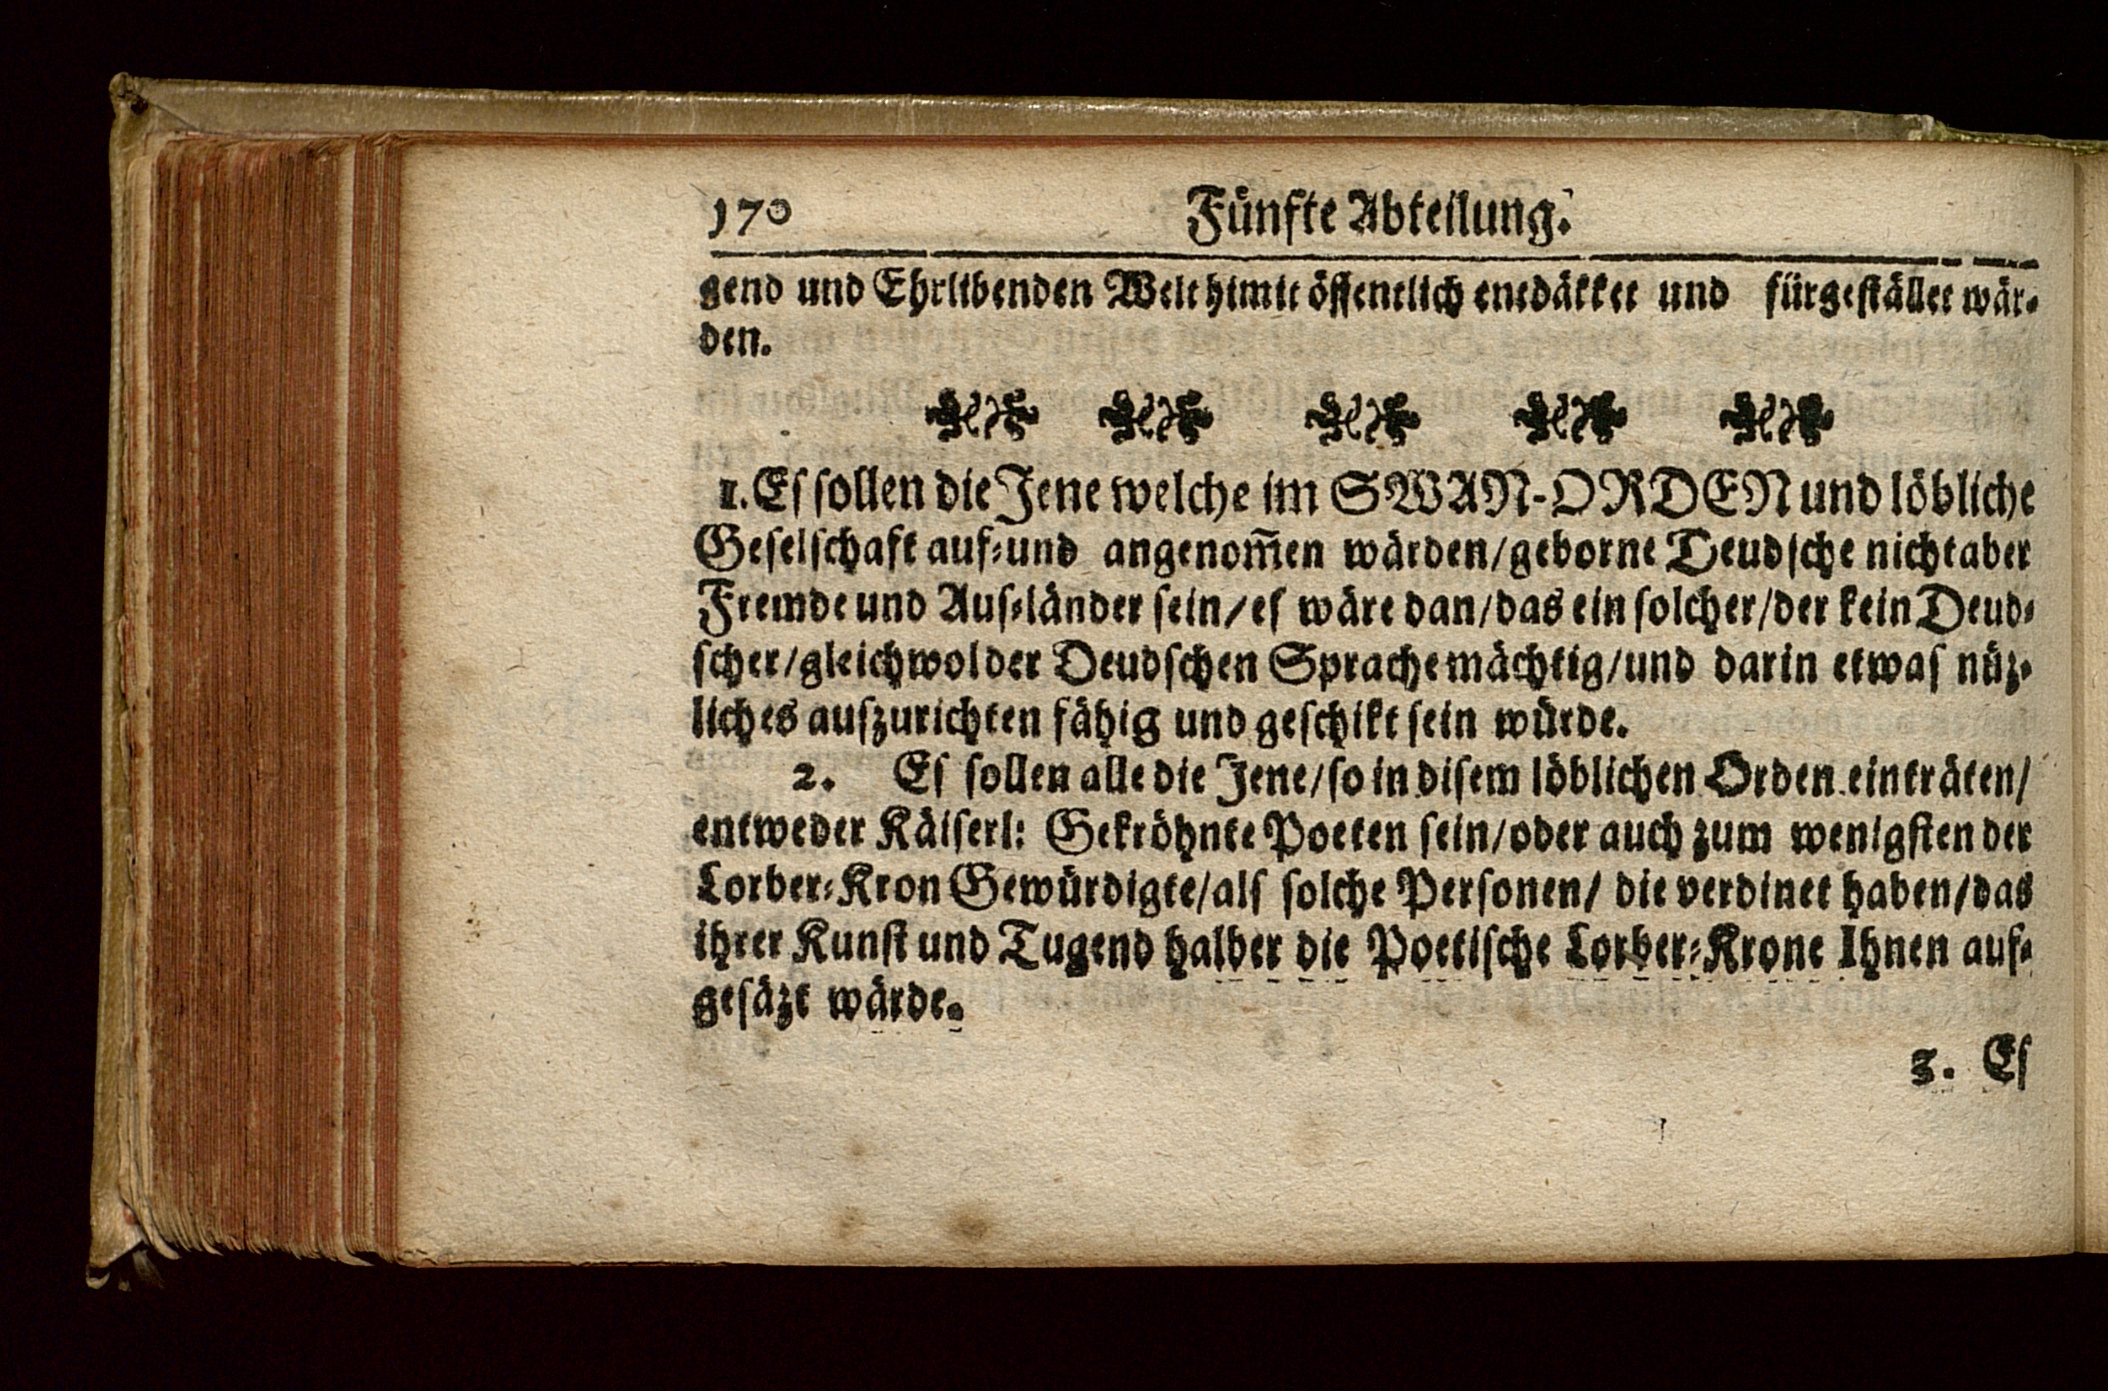 170 Fünfte Abteilung.
gend und Ehrlibenden Welt himit öffentlich entdäkket und fürgestället wär⸗
den.
1. Eſ ſollen die Jene welche im SWAN-ORDEN und löbliche
Geſelſchaft auf⸗und angenom̃en wärden/geborne Teudſche nicht aber
Fremde und Auſ⸗länder ſein/eſ wäre dan/das ein ſolcher/der kein Deud⸗
ſcher/gleichwol der Deudſchen Sprache mächtig/und darin etwaſ nüz⸗
liches auſzurichten fähig und geſchikt ſein würde.
2. Eſ ſollen alle die Jene/ſo in diſem löblichen Orden einträten/
entweder Käiſerl: Gekröhnte Poeten ſein/oder auch zum wenigſten der
Lorber⸗Kron Gewürdigte/alſ ſolche Perſonen/ die verdinet haben/das
ihrer Kunſt und Tugend halber die Poetiſche Lorber⸗Krone Ihnen auf⸗
geſäzt wärde.
3. Eſ